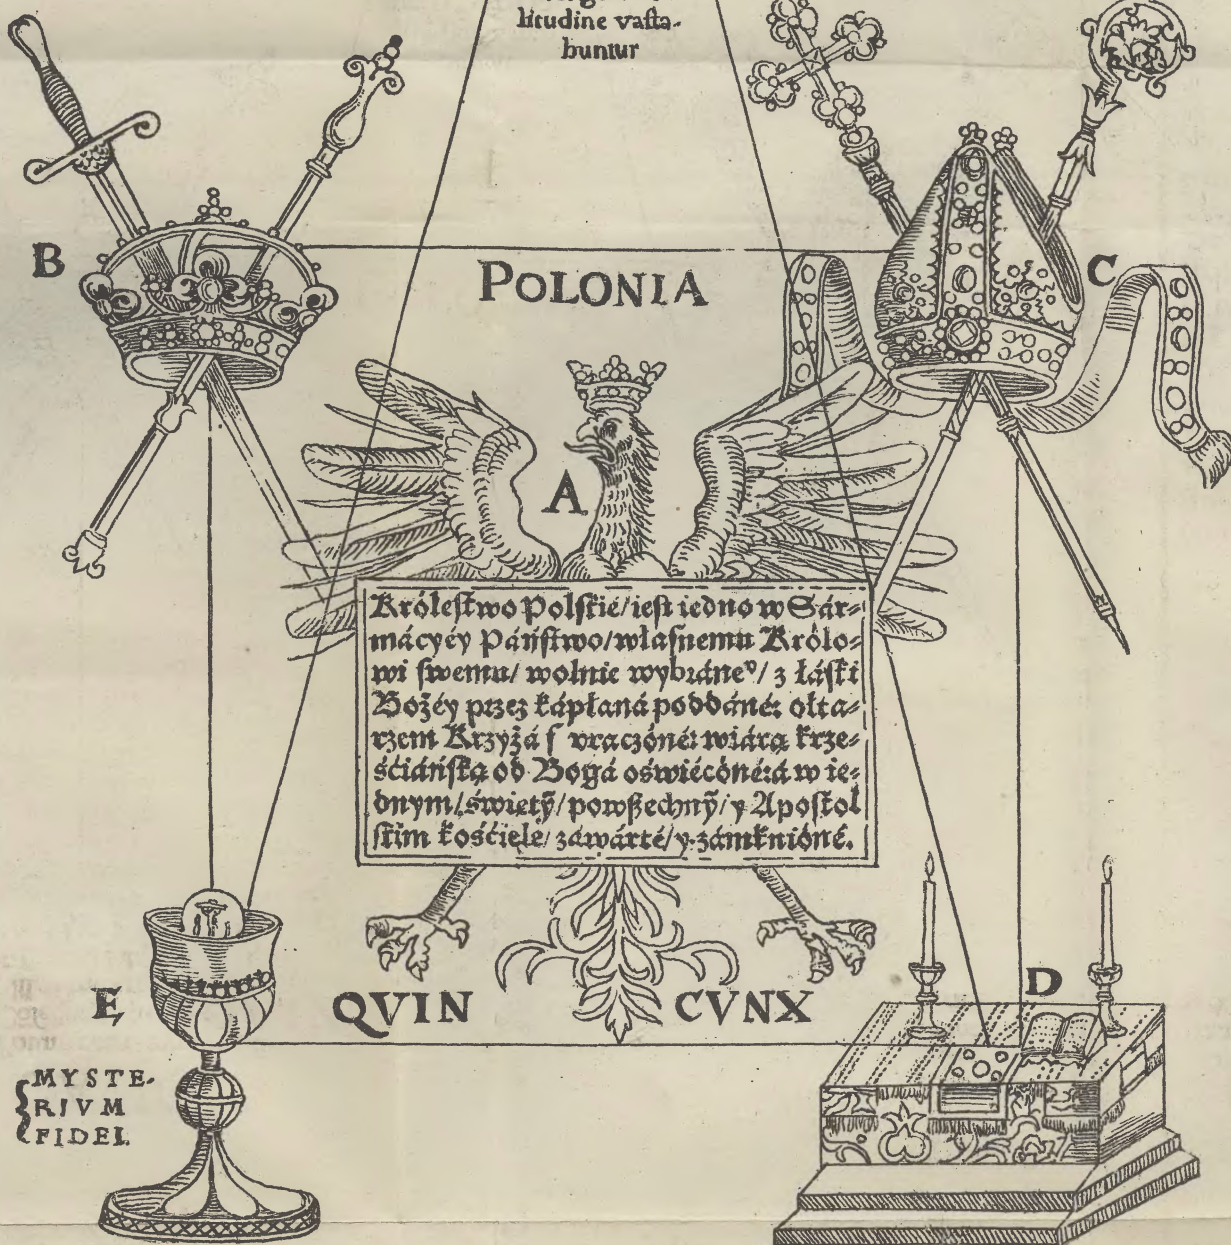 litudine vasta-
buntur
B
C
POLONIA
A
Królestwo Polskié/iest iedno w Sár-
mácyéy Páństwo/własnemu Królo-
wi swemu/ wolnie wybráneº/ z łáski
Bożéy przez kápłaná poddáné: ołta-
rzem Krzyżá ſ vraczóné: wiárą krze-
śćiáńską od Bogá oświécóné: á w ie-
dnym/ świętỹ/ powßechnỹ/ y Apostol
skim kośćiele/ záwárté/ y zámknióné.
E
D
QVIN CVNX
MYSTE-
RIVM
FIDEI.